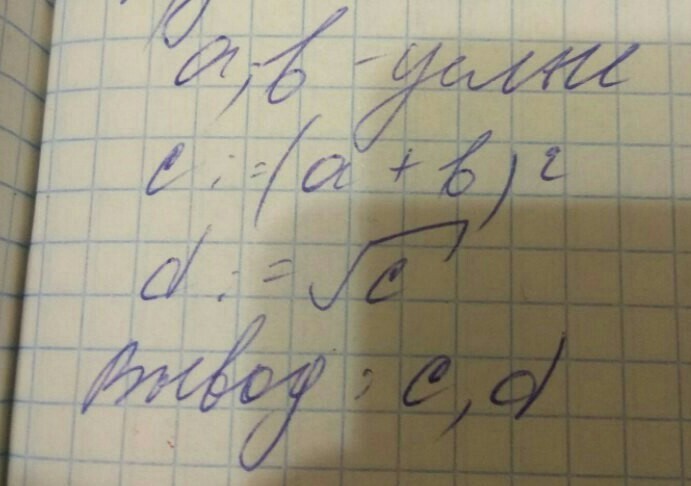 a, b - целые
c := (a + b)²
d := √c
Вывод: c, d